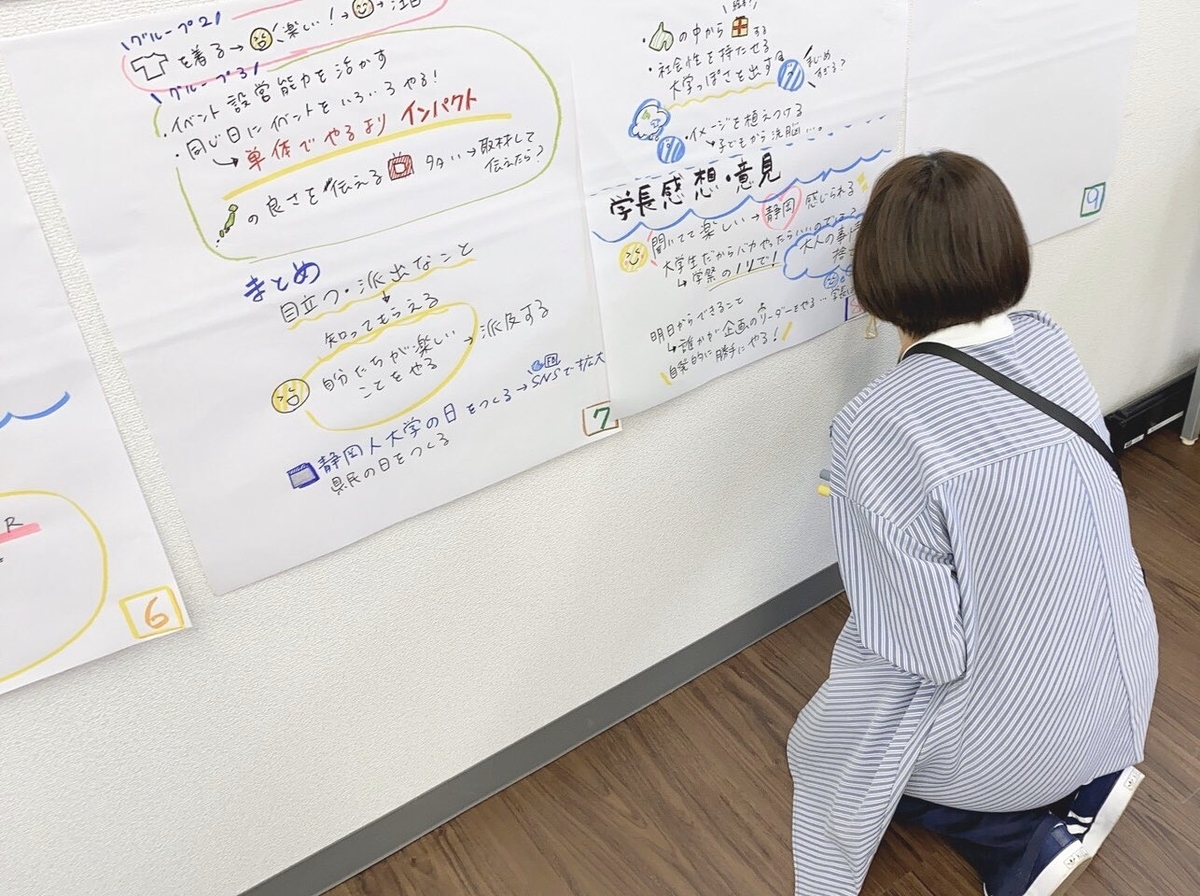 \グループ2/
を着る→ 楽しい!→ →注目
\グループ3/
・イベント設営能力を活かす
・同じ日にイベントをいろいろやる!
↳単体でやるよりインパクト
の良さを伝える 多い→取材して
伝えたら?
まとめ
目立つ・派出なこと
↓
知ってもらえる
自分たちが楽しい
ことをやる
→派及する
静岡人大学の日をつくる→SNSで拡大
県民の日をつくる
7
の中から する
・社会性を持たせる
大学っぽさを出す
まじめ
すぎる?
・イメージを植えつける
↳子どもから洗脳…。
学長感想・意見
聞いてて楽しい→静岡感じられる
大学生だからバカやったらいいのでは?
↳学祭のノリで!
大人の事情
捨
明日からできること
↳誰かが企画のリーダーをやる…学長
自発的に勝手にやる!
9
R
6